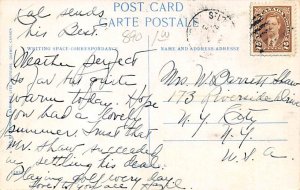 Kal sends
his Best.
POST CARD
CARTE POSTALE
890
1.00
WRITING SPACE-CORRESPONDANCE
NAME AND ADDRESS-ADRESSE
Weather perfect
so far but quite
warm today. Hope
you had a lovely
summer & that
Mr Shaw succeeded
in settling his deal.
Playing golf every day.
Love to you
Mrs. W. Barrett Shaw
173 Riverside Drive
N.Y. City
N.Y.
U.S.A.